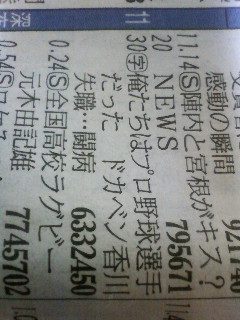 11
921740
感動の瞬間
11.14Ⓢ陣内と宮根がキス?
20 NEWS 795671
30字俺たちはプロ野球選手
だった ドカベン香川
失職…闘病 6332450
0.24Ⓢ全国高校ラグビー
元木由記雄 7745702
0.54Ⓢ